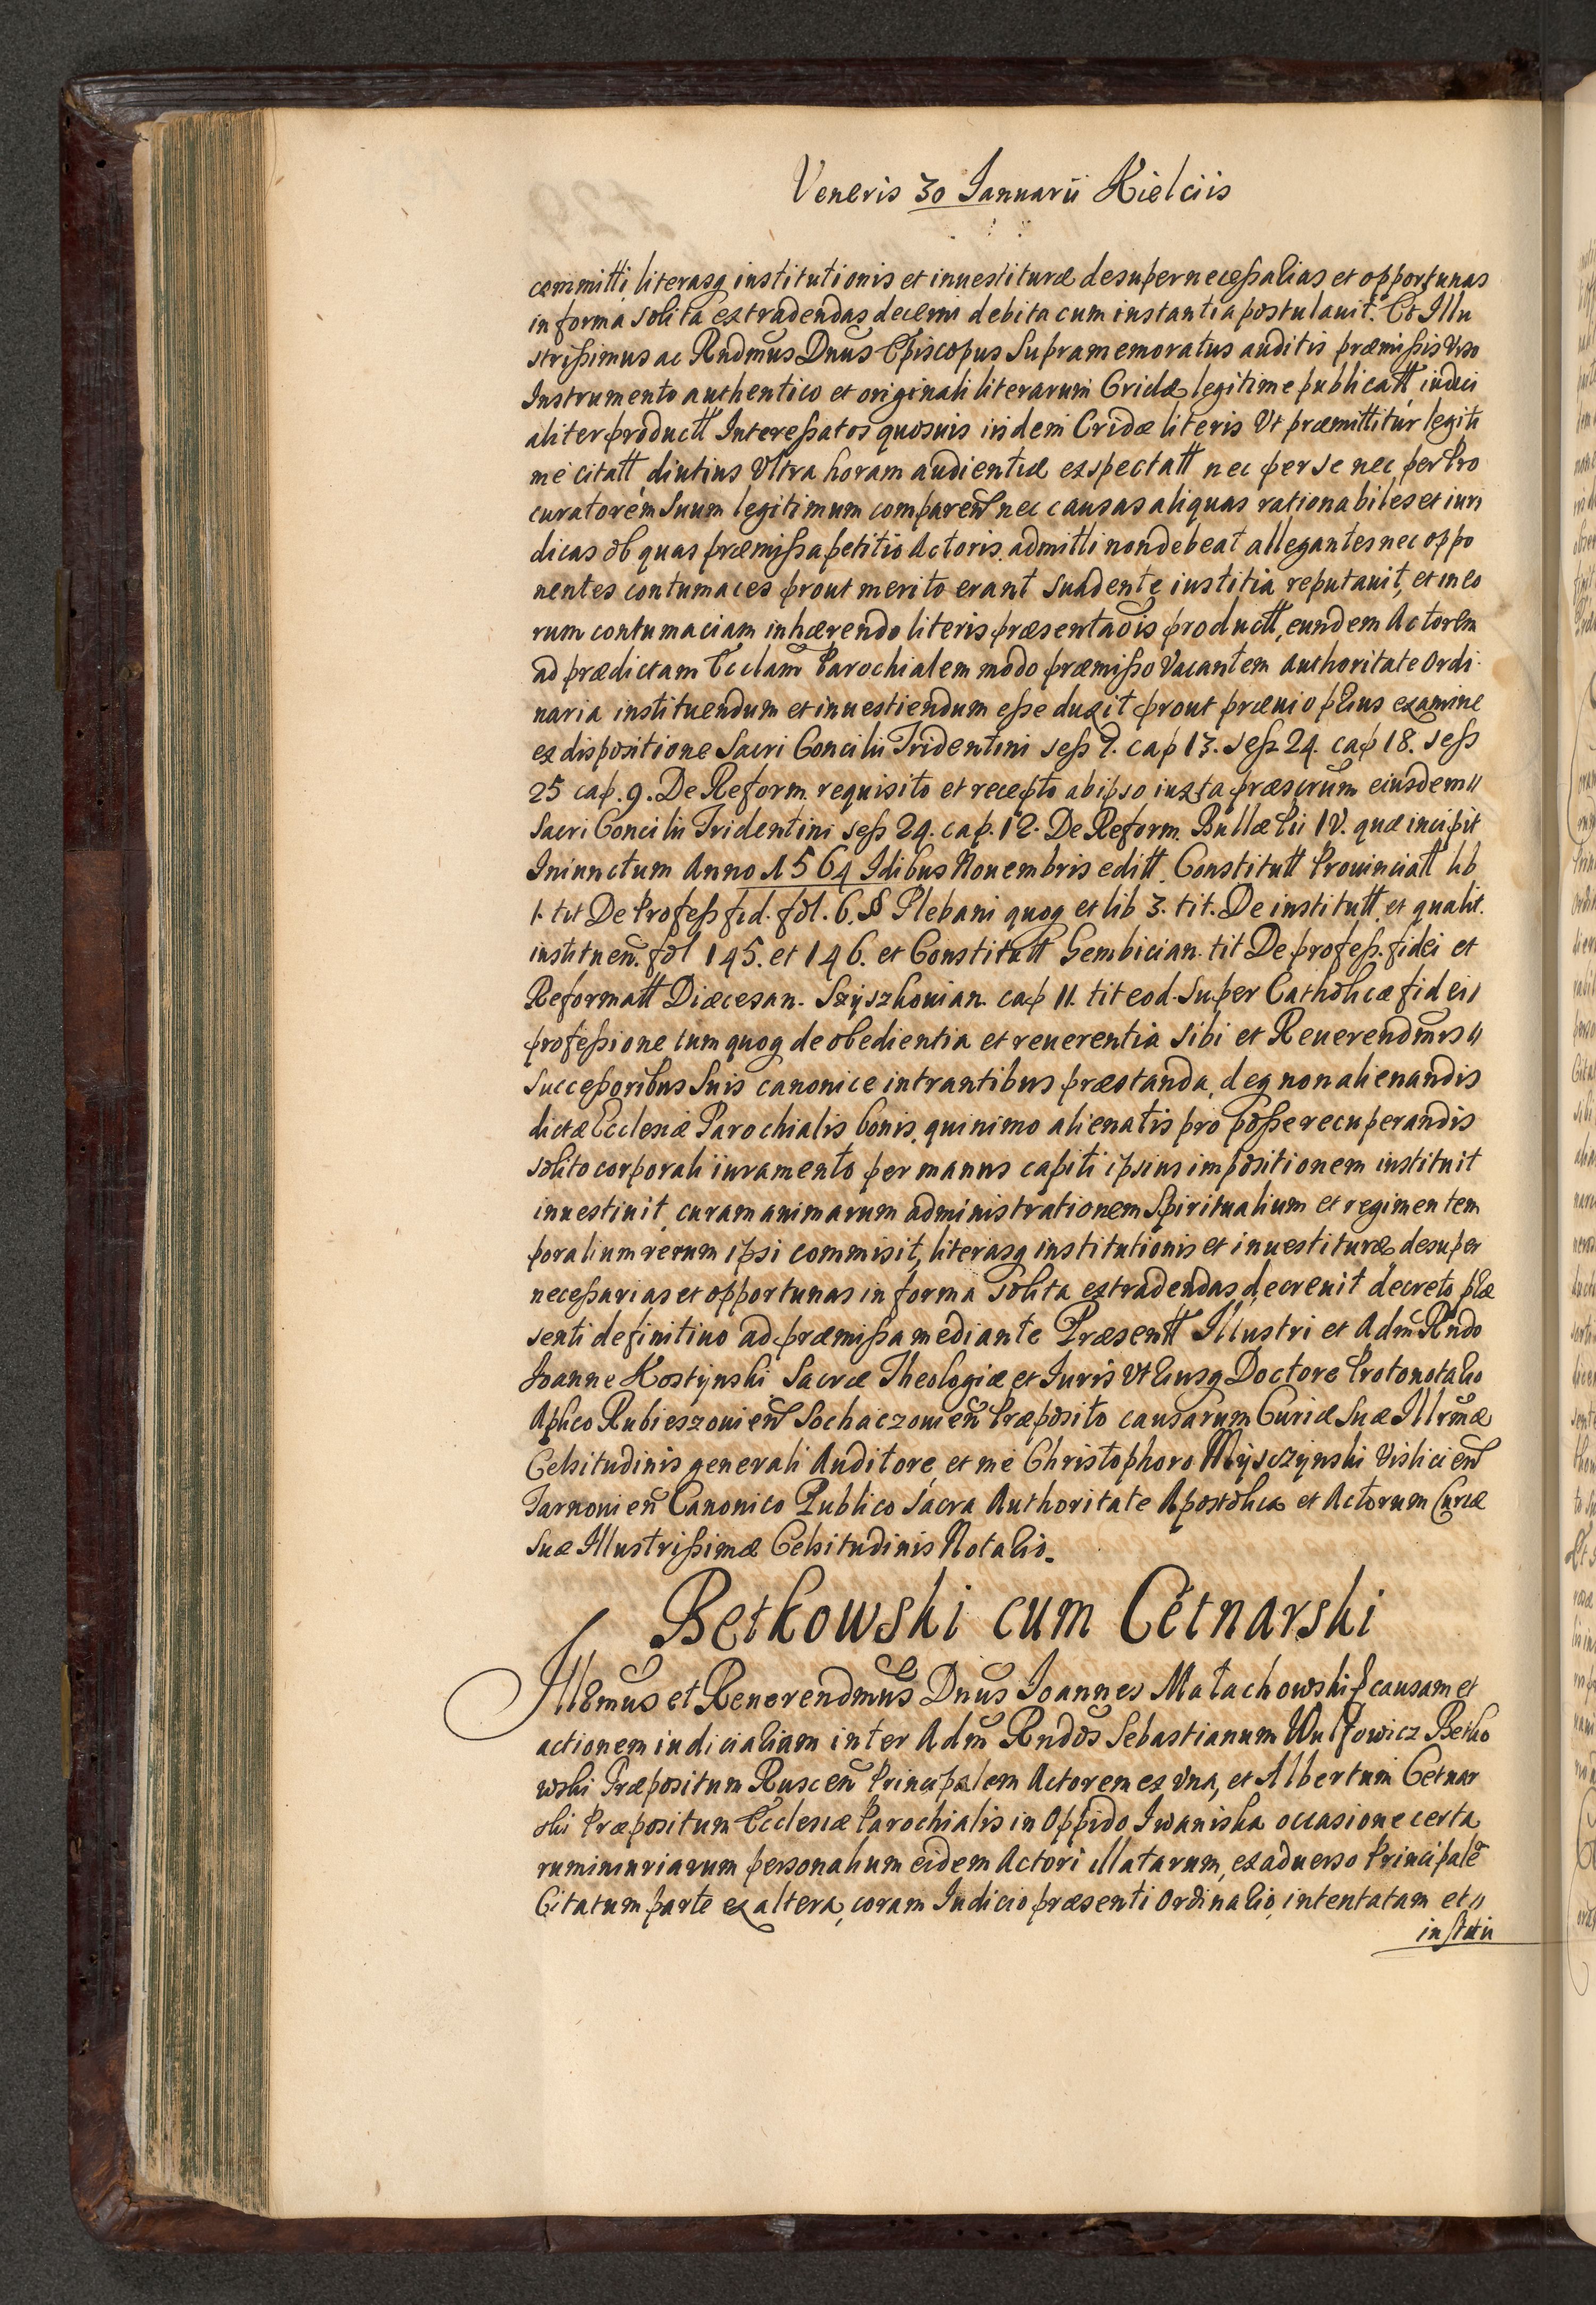 Veneris 30 Ianuarii Kielciis
committi, literasq institutionis et inuestituræ desuper necessarias et opportunas
in forma solita extradendas decerni debita cum instantia postulauit. Et Illu
strissimus ac Rndmus Dnus Episcopus Supramemoratus auditis præmissis viso
Instrumento authentico et originali literarum Cridæ legitime publicatt, iudici
aliter productt Interessatos quosuis iisdem Cridæ literis Vt præmittitur legiti
me citatt diutius Vltra horam audientiæ expectatt nec per se nec per Pro
curatorem Suum legitimum comparen̄ nec causas aliquas rationabiles et iuri
dicas ob quas præmissa petitio Actoris admitti non debeat allegantes nec oppo
nentes contumaces prout merito erant suadente iustitia reputauit, et in eo
rum contumaciam inhærendo literis præsentaōis productt, eundem Actorem
ad prædictam Ecclam Parochialem modo præmisso Vacantem Authoritate Ordi
naria instituendum et inuestiendum esse duxit prout præuio prius examine
ex dispositione Sacri Concilii Tridentini sess 7. cap 13. sess 24. cap 18. sess
25 cap. 9. De Reform. requisito et recepto ab ipso iuxta præscrum eiusdem
Sacri Concilii Tridentini sess 24. cap. 12. De Reform. Bullæ Pii IV. quæ incipit
Iniunctum Anno 1564 Idibus Nouembris editt. Constitutt Prouinciatt lib
1. tit De Profess fid. fol. 6. § Plebani quoq et lib 3. tit. De institutt. et qualit.
instituen̄. fol 145. et 146. et Constitutt Gembician. tit De profess. fidei et
Reformatt Diæcesan. Szyszkouian. cap 11. tit eod. Super Catholicæ fidei
professione tum quoq de obedientia et reuerentia sibi et Reuerendmis
Successoribus Suis canonice intrantibus præstanda, deq non alienandis
dictæ Ecclesiæ Parochialis bonis, quinimo alienatis pro posse recuperandis
solito corporali iuramento per manus capiti ipsius impositionem instituit
inuestiuit, curam animarum administrationem Spiritualium et regimen tem
poralium rerum ipsi commisit, literasq institutionis et inuestituræ desuper
necessarias et opportunas in forma solita extradendas decreuit decreto præ
senti definitiuo ad præmissa mediante Præsentt Illustri et Adm Rndo
Ioanne Kostynski Sacræ Theologiæ et Iuris Vtriusq Doctore Protonotario
Aplico Rubieszouien̄ Sochaczouien̄ Præposito causarum Curiæ Suæ Illrmæ
Celsitudinis generali Auditore, et me Christophoro Mysczynski Vislicien̄
Tarnouien̄ Canonico Publico Sacra Authoritate Apostolica et Actorum Curiæ
Suæ Illustrissimæ Celsitudinis Notario.
Betkowski cum Cetnarski
Illrmus et Reuerendmus Dnus Ioannes Małachowski causam et
actionem iudiciariam inter Adm Rndos Sebastianum Wulfowicz Betko
wski Præpositum Ruscen̄ Principalem Actorem ex vna, et Albertum Cetnar
ski Præpositum Ecclesiæ Parochialis in Oppido Iwaniska occasione certa
rum iniuriarum personalium eidem Actori illatarum, ex aduerso Principalē
Citatum parte ex altera, coram Iudicio præsenti Ordinario, intentatam et
institu